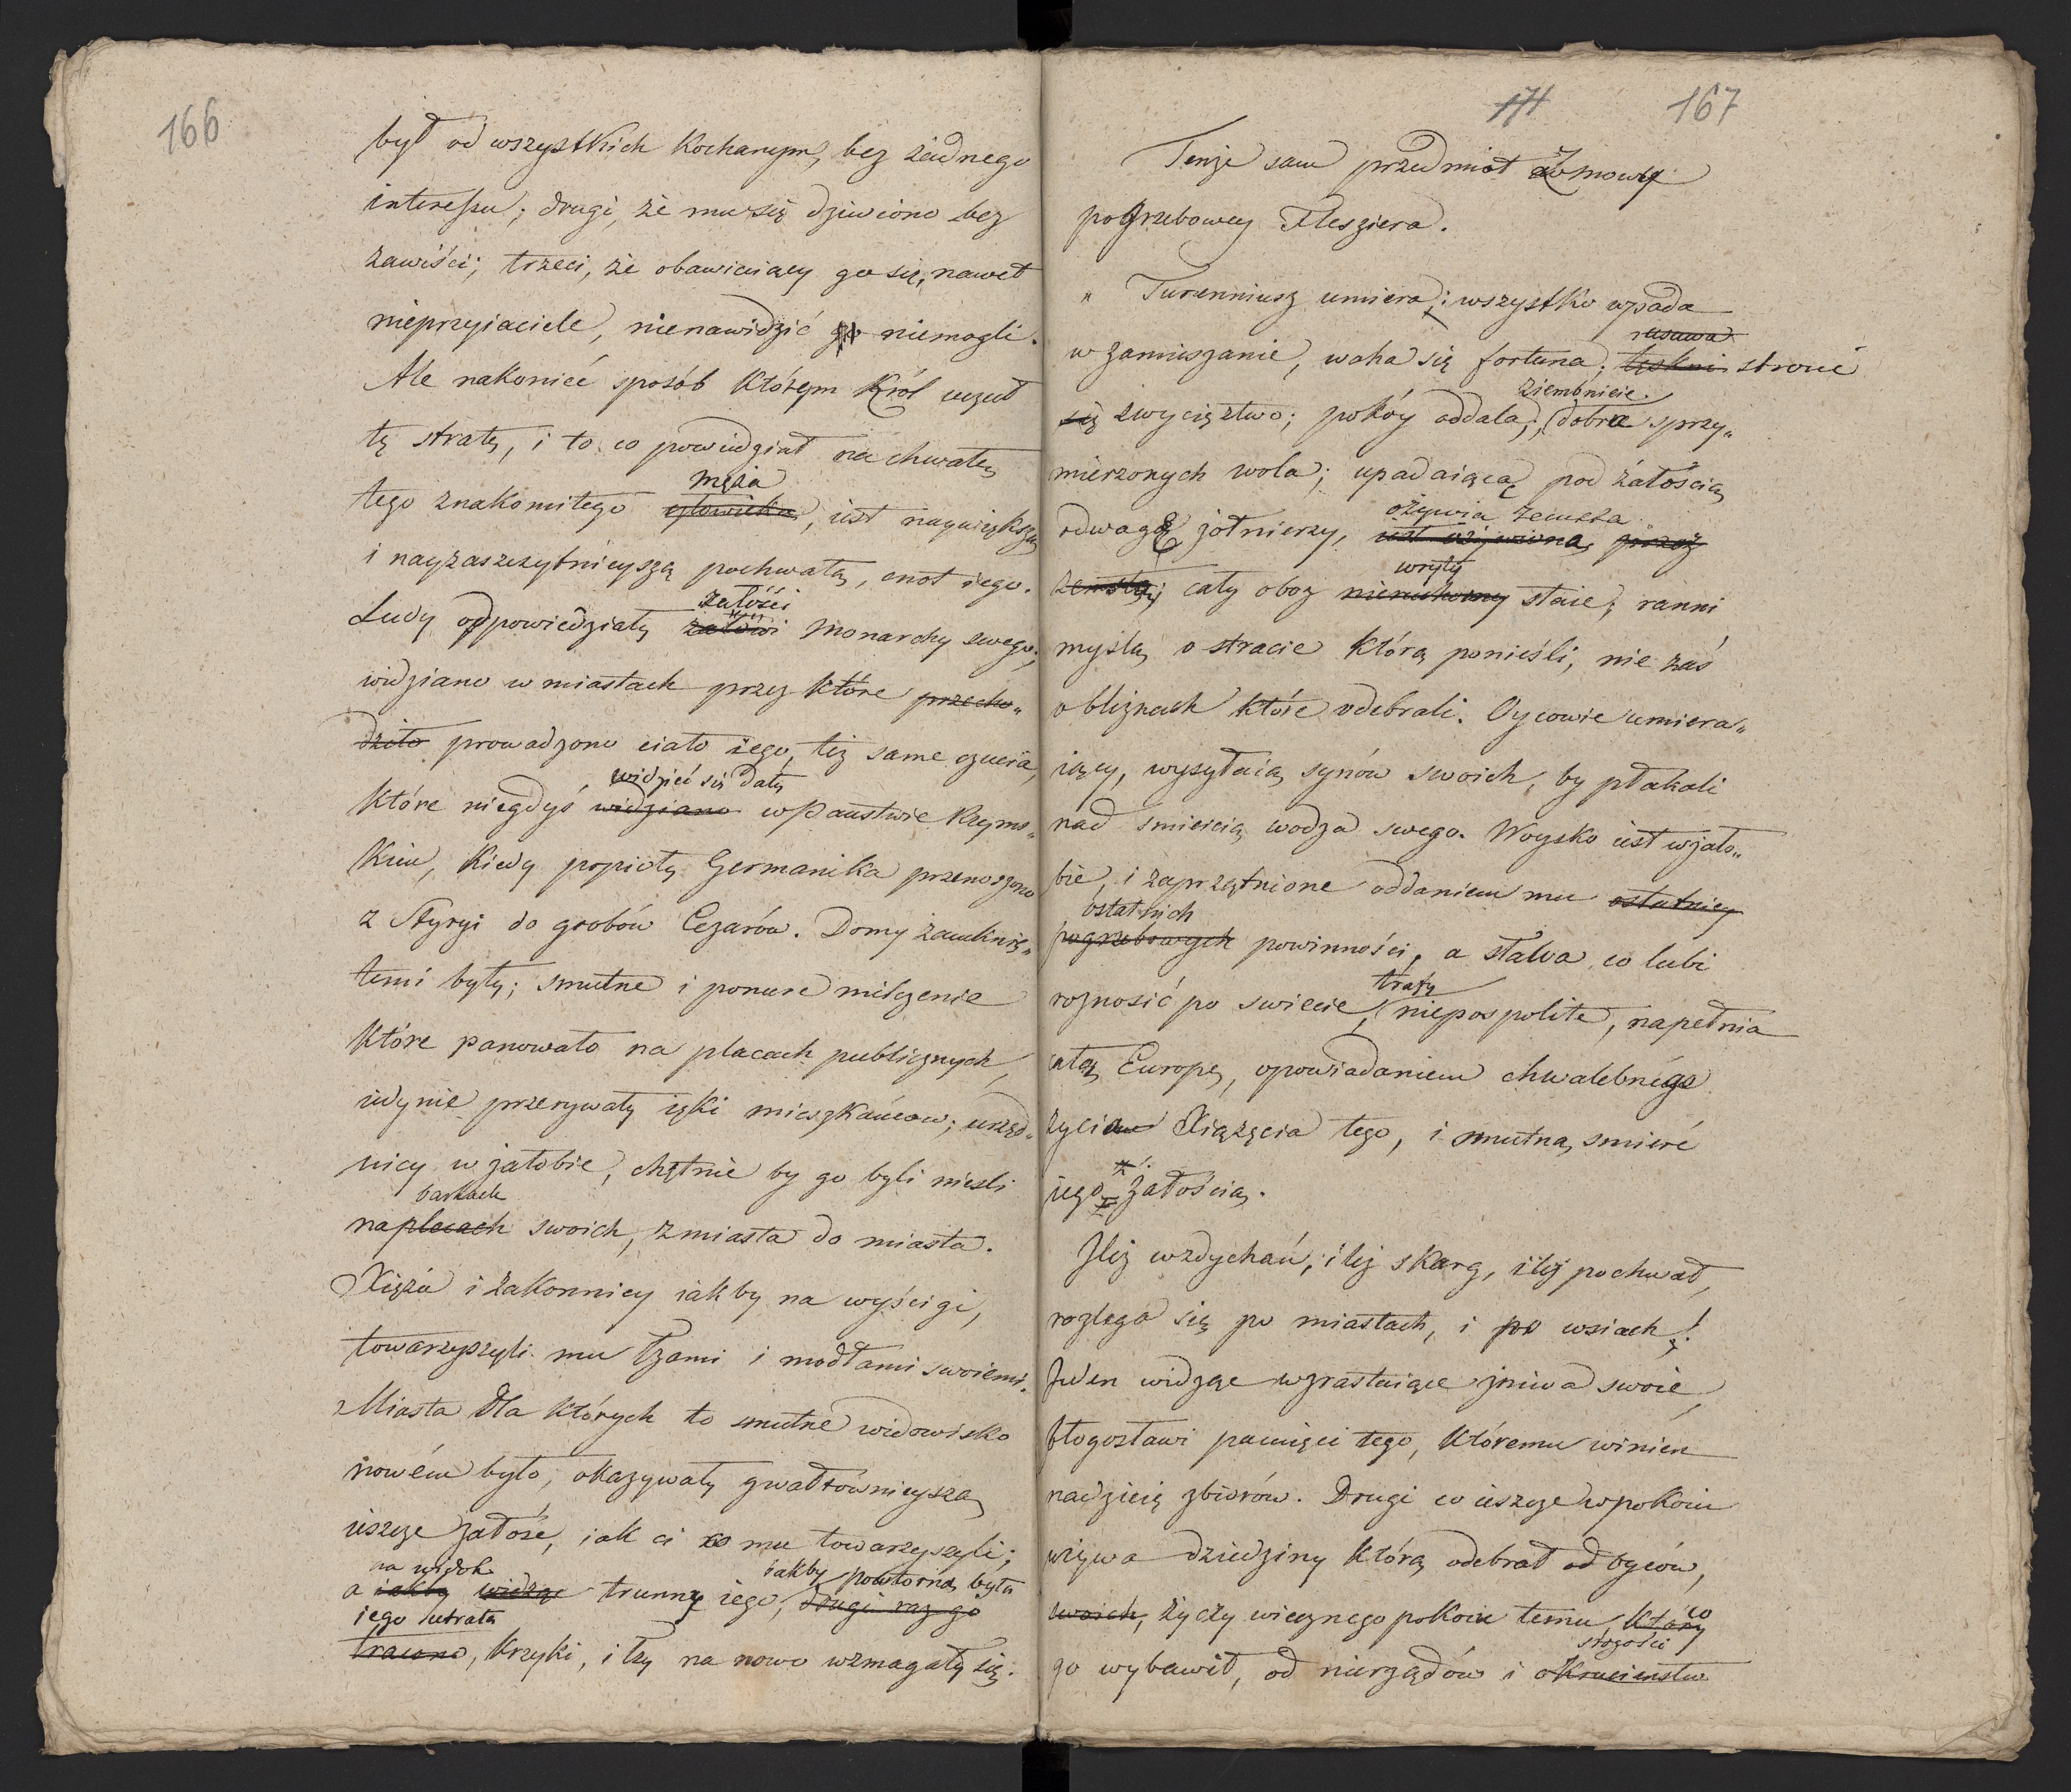 166
był od wszystkich kochanym, bez żadnego
interessu; drugi, że mu się dziwiono bez
zawiści; trzeci, że obawiaiący go się, nawet
nieprzyiaciele, nienawidzić go niemogli.
Ale nakoniec sposób którym Król uczuł
tę stratę, i to co powiedział na chwałę
męża
tego znakomitego człowieka, iest naywiększą
i nayzaszczytnieyszą pochwałą, cnot iego.
żałości
Ludy odpowiedziały żalowi Monarchy swego;
widziano w miastach przez które przecho„
dziło prowadzono ciało iego, też same czucia,
widzieć się dały
które niegdyś widziano w Państwie Rzyms„
kim, kiedy popioły Germanika przenoszono
z Styryi do grobów Cezarów. Domy zamknię„
temi były; smutne i ponure milczenie
które panowało na placach publicznych,
iedynie przerywały ięki mieszkańcow; urzęd„
nicy w żałobie, chętnie by go byli nieśli
barkach
na plecach swoich, z miasta do miasta.
Xięża i zakonnicy iakby na wyścigi,
towarzyszyli mu łzami i modłami swoiemi.
Miasta dla których to smutne widowisko
nowém było, okazywały gwałtownieyszą
ieszcze żałość, iak ci co mu towarzyszyli;
na widok iakby powtorną była
a iakby widząc trunny iego, drugi raz go
iego utrata
tracono, krzyki, i łzy na nowo wzmagały się.
171 167
Tenże sam przedmiot z mowy
pogrzebowey Flesziera.
„ Turenniusz umiera; wszystko wpada
w zamieszanie, waha się fortuna; tęskni stronić
ziembnieie
się zwycięztwo; pokóy oddala; dobra sprzy„
mierzonych wola; upadaiącą pod żałością
ożywia zemsta
odwagę żołnierzy, iest ożywioną przez
wryty
zemstę; cały oboz nieruchomy staie; ranni
myślą o stracie którą ponieśli, nie zaś
o bliznach które odebrali. Oycowie umiera„
iący, wysyłaią synów swoich, by płakali
nad śmiercią wodza swego. Woysko iest w żało„
bie, i zaprzątnione oddaniem mu ostatniey
ostatnich
pogrzebowych powinności, a sława co lubi
trafy
roznosić po swiecie, niepospolite, napełnia
całą Europę, opowiadaniem chwalebnégo
życia Xiążęcia tego, i smutną, smierć
iego żałością.
Ileż wzdychań, ileż skarg, ileż pochwał,
rozlega się po miastach, i po wsiach!
Jeden widząc wzrastaiące żniwa swoie,
błogosławi pamięci tego, któremu winien
nadzieię zbiorów. Drugi co ieszcze w pokoiu
używa dziedziny którą odebrał od oyców,
co
swoich, życzy wiecznego pokoiu temu, który
srogości
go wybawił, od nierządów i okrucieństw